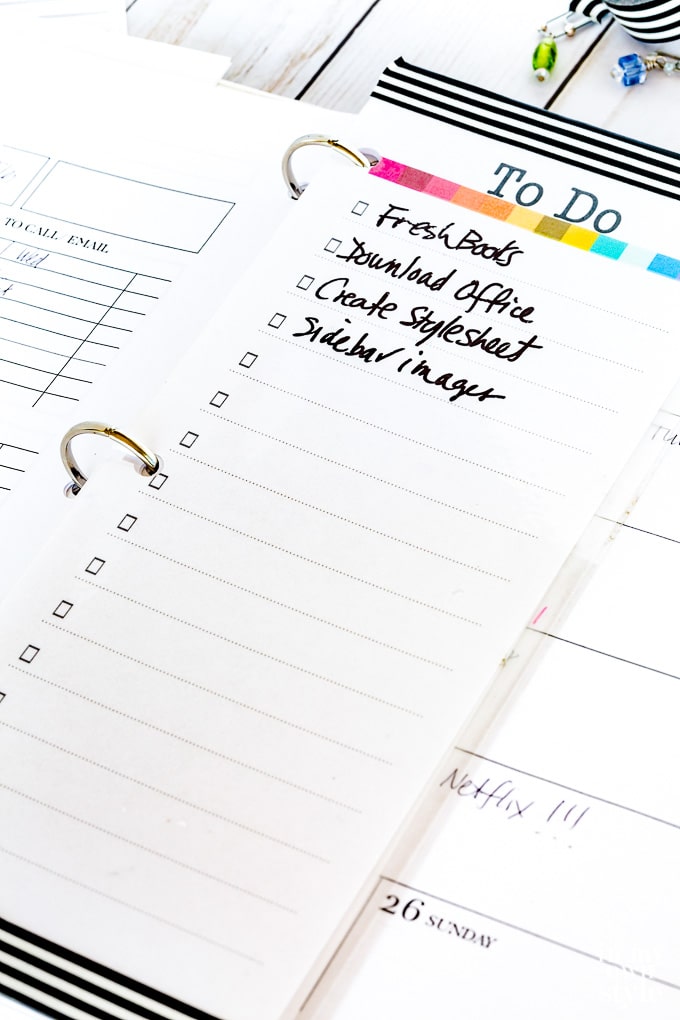 To Do
FreshBooks
Download Office
Create Stylesheet
Sidebar images
TO CALL EMAIL
Wed
Netflix !!!
26 SUNDAY